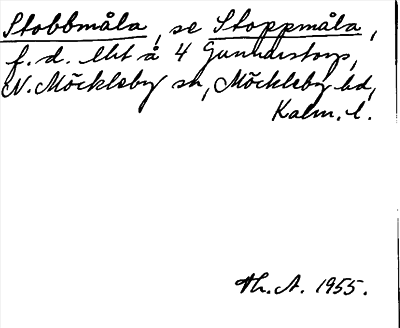 Stobbmåla, se Stoppmåla,
f.d. lht å 4 Gunnarstorp,
N. Möckleby sn, Möckleby hd,
Kalm. l.
Th. A. 1955.